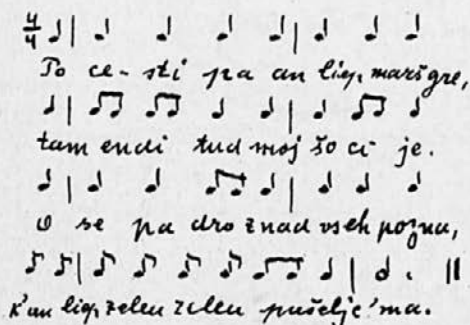 4/4
Po ce-sti pa an liep, marš gre,
tam endi tud moj šo ci je.
O se pa dro znad vseh pozna,
k'an liep, zelen zelen pušeljc 'ma.